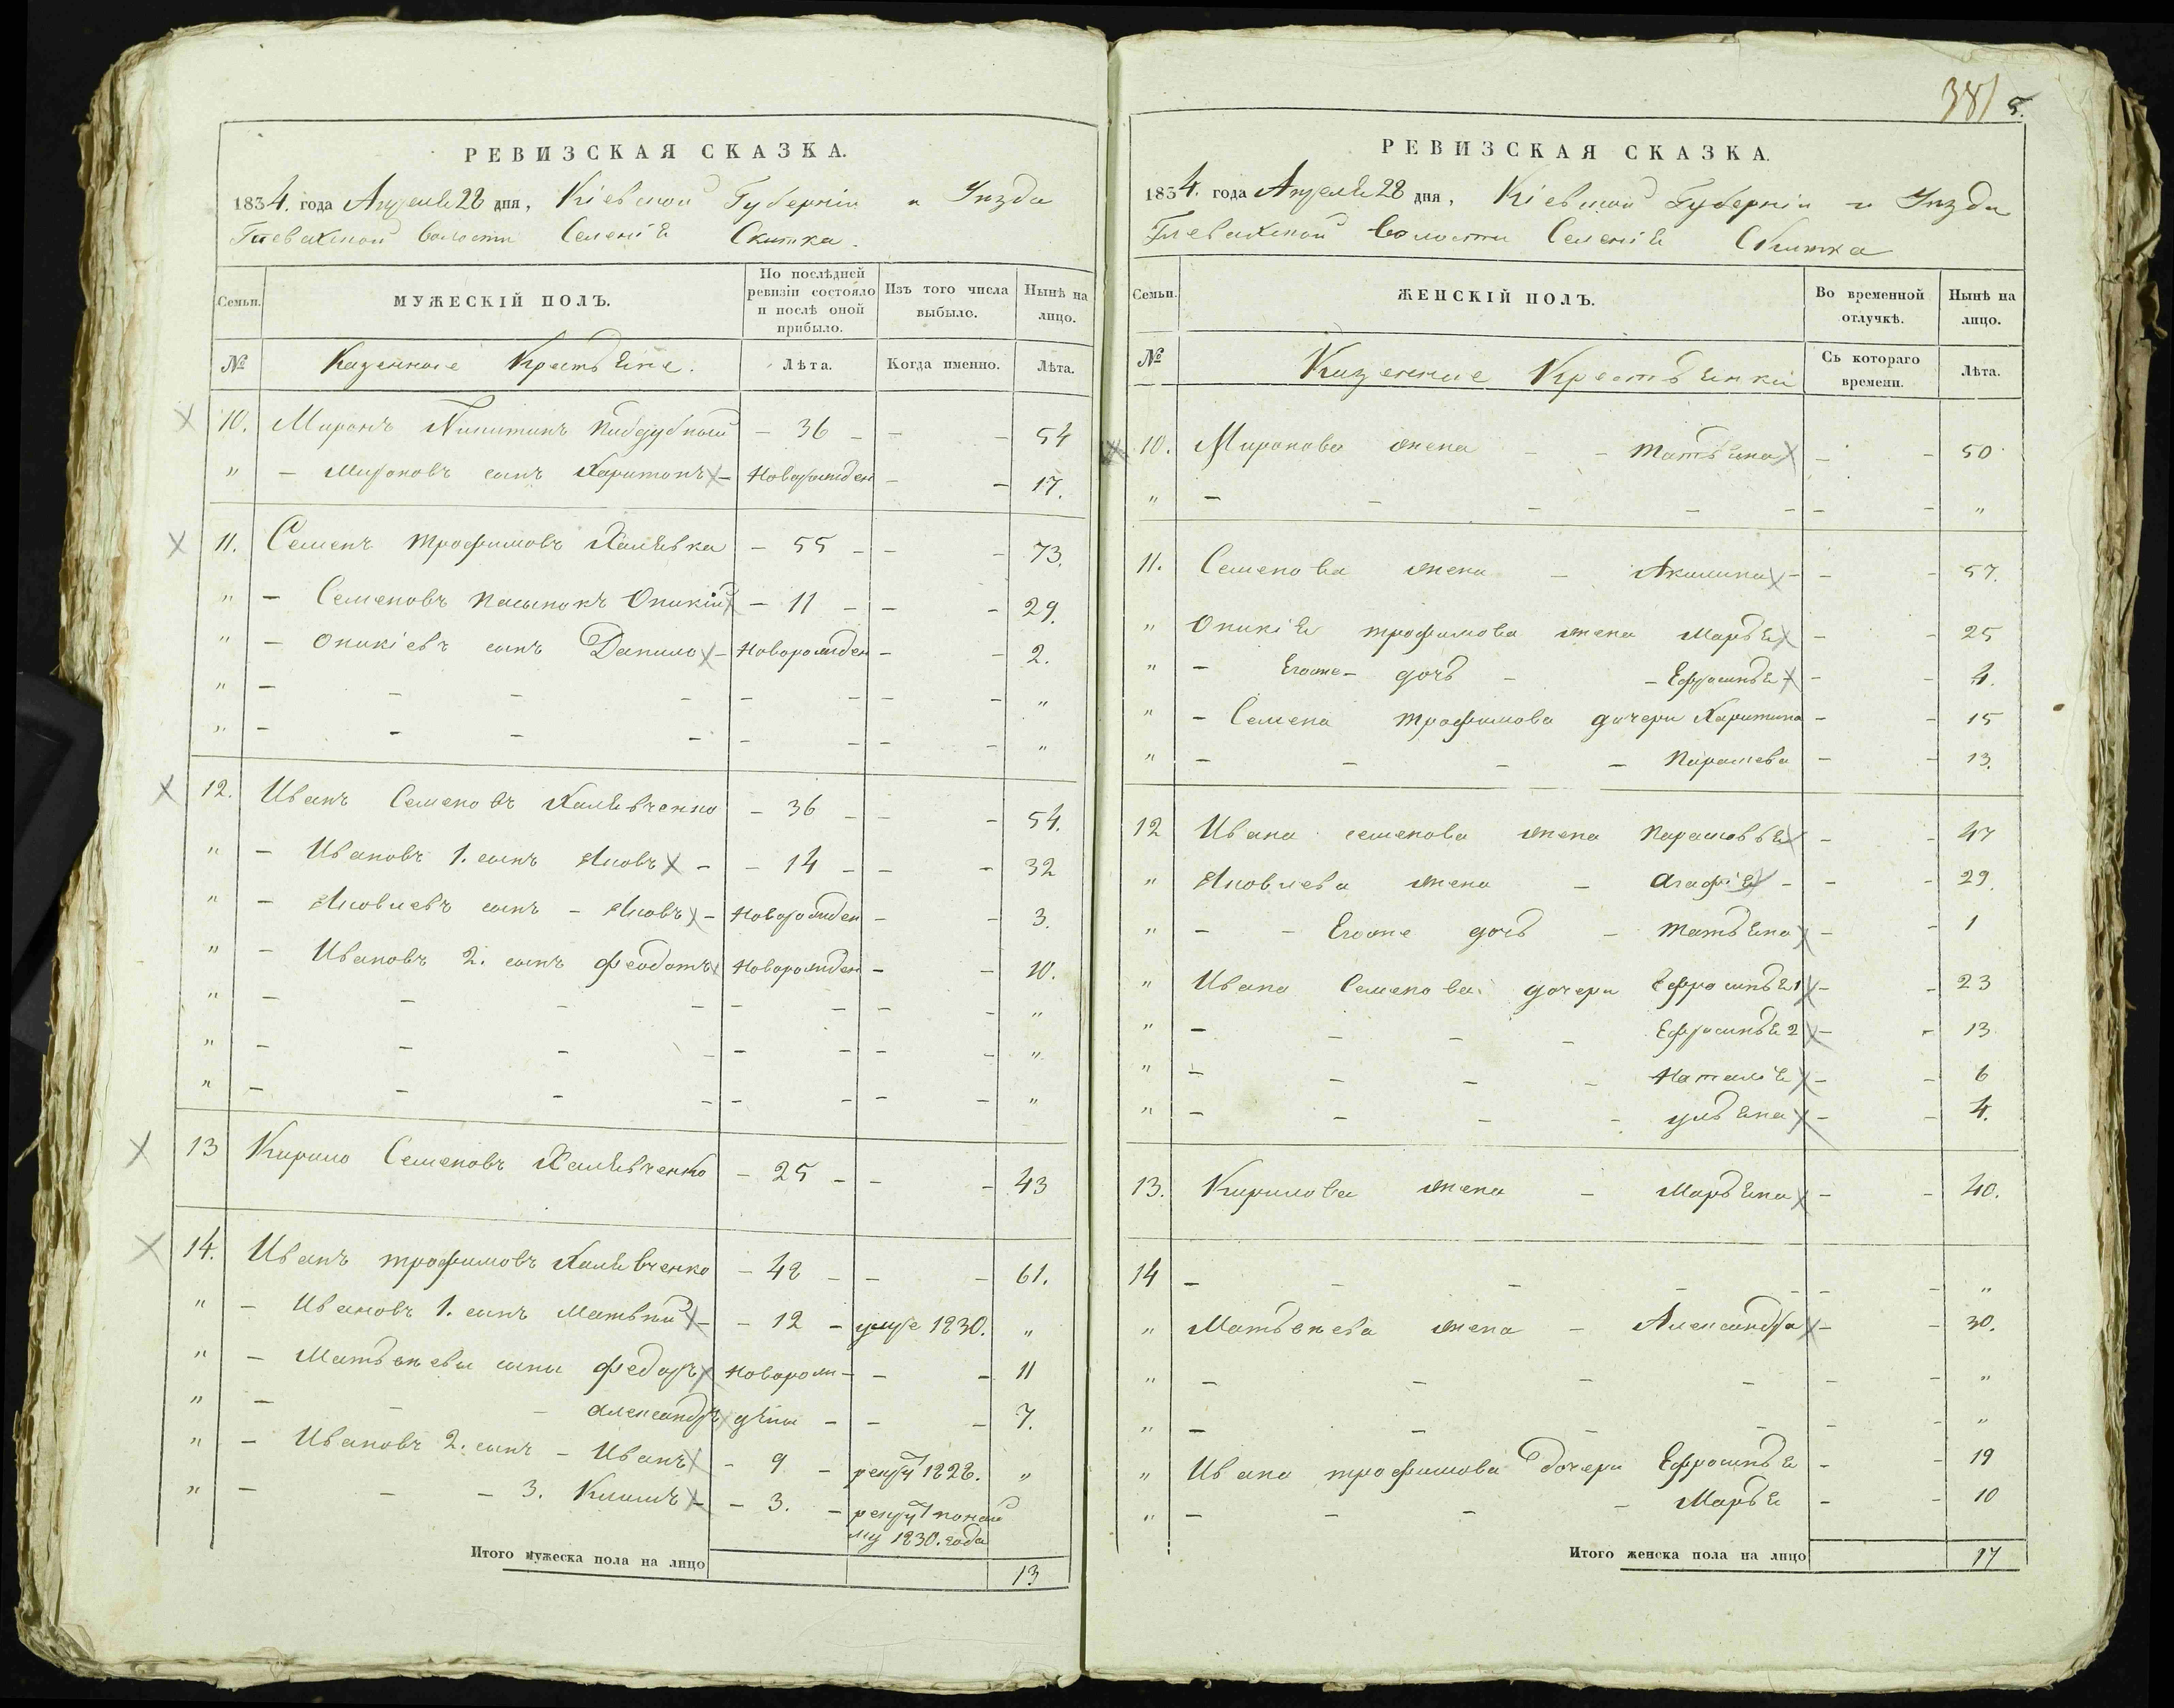 РЕВИЗСКАЯ СКАЗКА.
1834. года Апреля 28 дня, Кіевской Губерніи и Уѣзда
Глевахской волости Селенія Скитка.
Семьи.
МУЖЕСКІЙ ПОЛЪ.
По послѣдней ревизіи состояло и послѣ оной прибыло.
Изъ того числа выбыло.
Нынѣ на лицо.
№
Казенные Крестьяне.
Лѣта.
Когда именно.
Лѣта.
10. Миронъ Никитинъ Пидубный - 36 - - - 54
" - Мироновъ сынъ Харитонъ - Новорожден - - 17.
11. Семенъ Трофимовъ Халявка - 55 - - - 73.
" - Семеновъ пасынокъ Оникій - 11 - - - 29.
" - Оникіевъ сынъ Данило - Новорожден - - 2.
" - - - - - - - - "
" - - - - - - - - "
12. Иванъ Семеновъ Халявченко - 36 - - - 54.
" - Ивановъ 1. сынъ Яковъ - - 14 - - - 32
" - Яковлевъ сынъ - Яковъ - Новорожден - - 3.
" - Ивановъ 2. сынъ Феодотъ Новорожден - - 10.
" - - - - - - - - "
" - - - - - - - - "
" - - - - - - - - "
13 Кирило Семеновъ Халявченко - 25 - - - 43
14. Иванъ Трофимовъ Халявченко - 48 - - - 61.
" - Ивановъ 1. сынъ Матвѣй - - 12 - умре 1830. "
" - Матвѣевы сыны Федоръ Новорож- - - 11
" - - - Александръ дѣны - - - 7.
" - Ивановъ 2. сынъ - Иванъ - 9 - рекрут 1828. "
" - - - 3. Климъ - - 3. -
му 1830. года
Итого мужеска пола на лицо 13
381 5.
РЕВИЗСКАЯ СКАЗКА.
1834. года Апреля 28 дня, Кіевской Губерніи и Уѣзда
Глевахской волости Селенія Скитка
Семьи.
ЖЕНСКІЙ ПОЛЪ.
Во временной отлучкѣ.
Нынѣ на лицо.
№
Казенные Крестьянки
Съ котораго времени.
Лѣта.
10. Миронова жена - - Татьяна - - 50
" - - - - - - - "
11. Семенова жена - Акилина - - - 57.
" Оникія Трофимова жена Марья - - 25
" - Егоже - дочь - - Ефросинья - - - 4.
" - Семена Трофимова дочери Харитина - - 15
" - - - - Парасева - - 13.
12 Ивана Семенова жена Парасовья - - 47
" Яковлева жена - Агафія - - - 29.
" - - Егоже дочь - Татьяна - - 1
" Ивана Семенова дочери Ефросинья 1 - - 23
" - - - - Ефросинья 2 - - 13
" - - - - Наталія - - 6
" - - - - Ульяна - - 4.
13. Кирилова жена - Марьяна - - 40.
14 - - - - - - - "
" Матвѣева жена - Александра - - 30.
" - - - - - - "
" - - - - - - "
" Ивана Трофимова дочери Ефросинья - - 19
" - - - - Марья - - 10
Итого женска пола на лицо 17